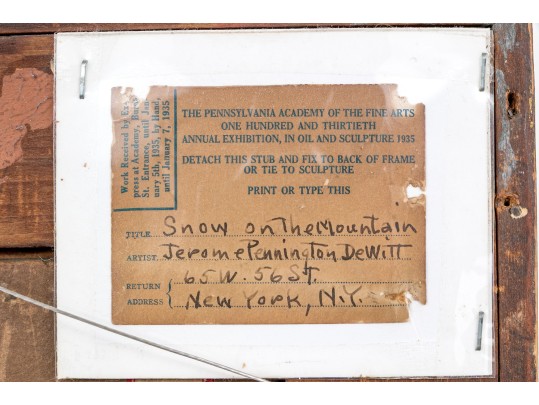 Work Received by Ex-
press at Academy, Burd
St. Entrance, until Jan-
uary 5th, 1935, by Hand,
until January 7, 1935
THE PENNSYLVANIA ACADEMY OF THE FINE ARTS
ONE HUNDRED AND THIRTIETH
ANNUAL EXHIBITION, IN OIL AND SCULPTURE 1935
DETACH THIS STUB AND FIX TO BACK OF FRAME
OR TIE TO SCULPTURE
PRINT OR TYPE THIS
TITLE Snow on the Mountain
ARTIST Jerome Pennington DeWitt
RETURN ADDRESS 65 W. 56 St.
New York, N.Y.